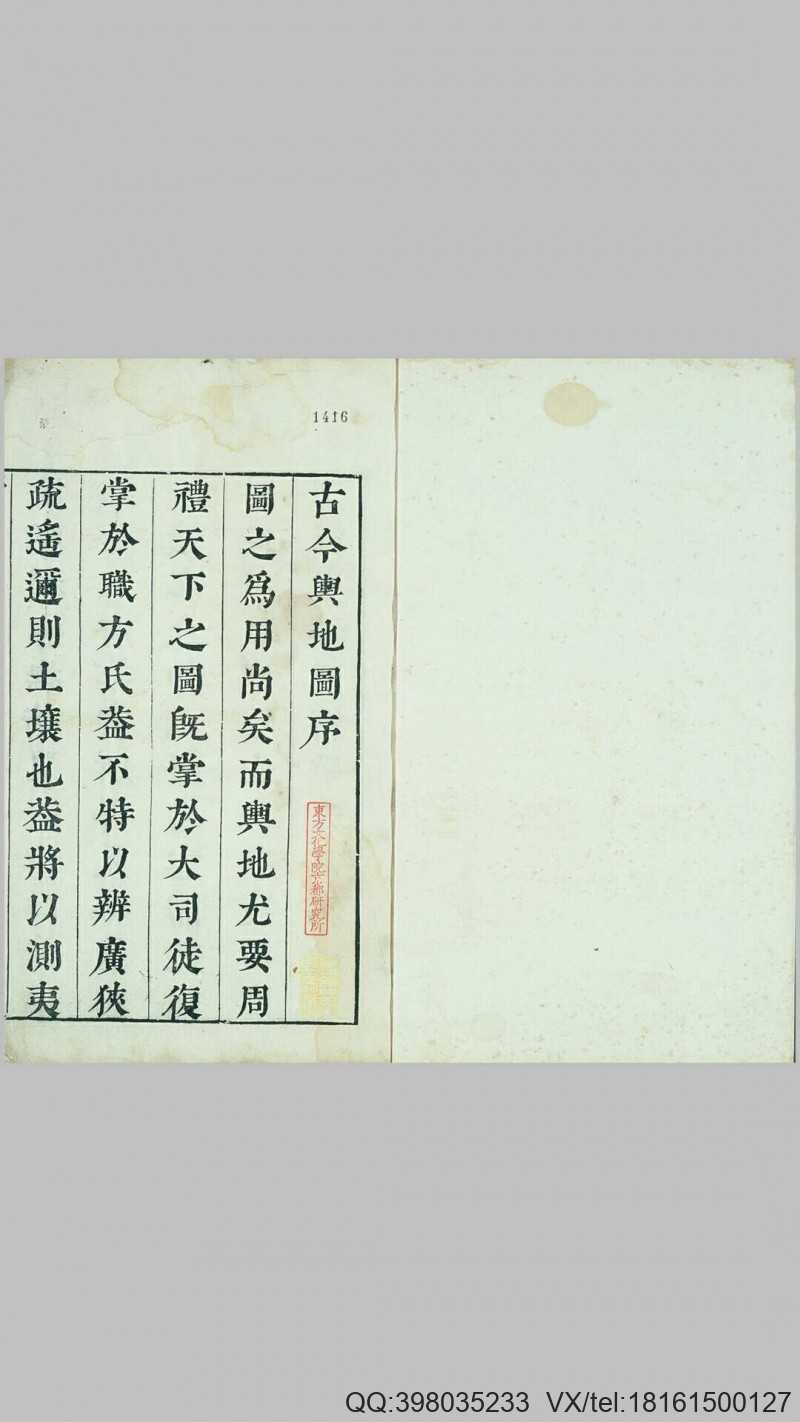 1416
古今輿地圖序
圖之爲用尚矣而輿地尤要周
禮天下之圖旣掌於大司徒復
掌於職方氏葢不特以辨廣狹
疏遙邇則土壤也葢將以測夷
東方文化學院京都研究所
QQ:398035233 VX/tel:18161500127